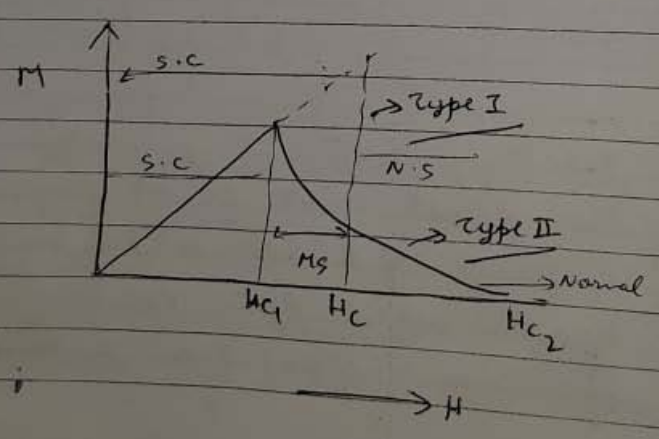 S.C
M
Type I
S.C
N.S
Type II
MS
Normal
HC1 HC
HC2
H